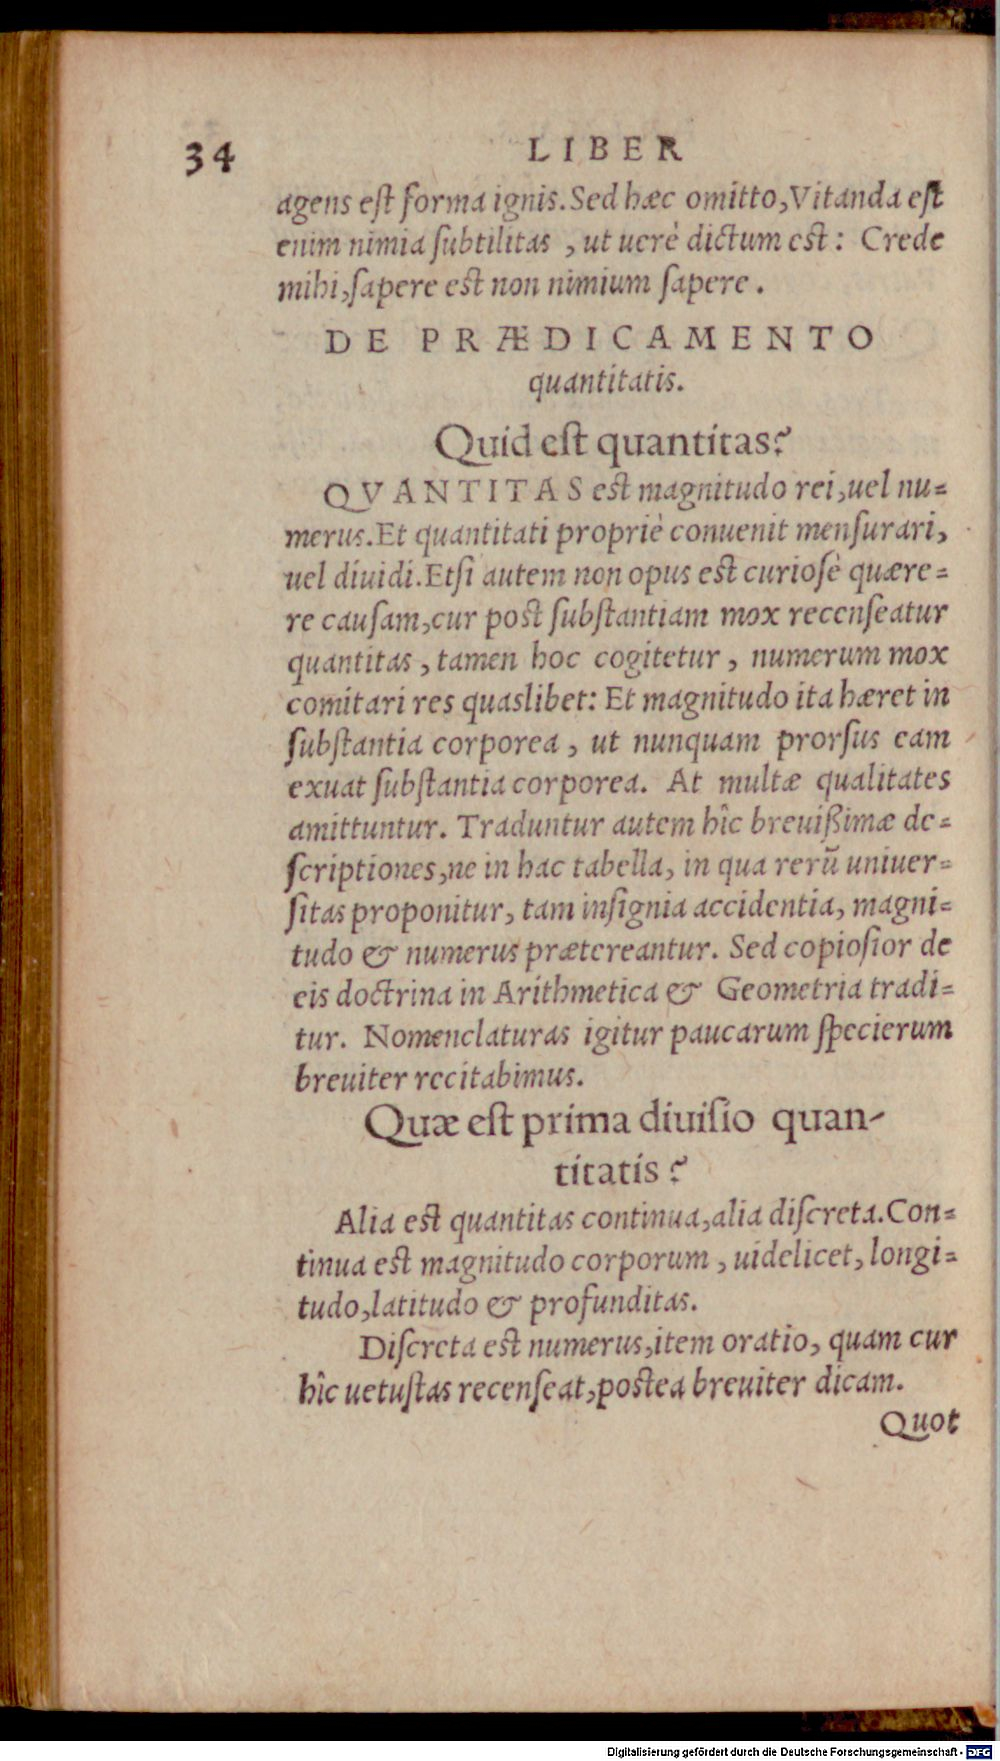 34
LIBER
agens eſt forma ignis. Sed hæc omitto, Vitanda eſt
enim nimia ſubtilitas, ut uerè dictum est: Crede
mihi, ſapere est non nimium ſapere.
DE PRÆDICAMENTO
quantitatis.
Quid eſt quantitas?
QVANTITAS est magnitudo rei, uel nu-
merus. Et quantitati propriè conuenit menſurari,
uel diuidi. Etſi autem non opus est curioſè quære-
re cauſam, cur post ſubſtantiam mox recenſeatur
quantitas, tamen hoc cogitetur, numerum mox
comitari res quaslibet: Et magnitudo ita hæret in
ſubſtantia corporea, ut nunquam prorſus eam
exuat ſubſtantia corporea. At multæ qualitates
amittuntur. Traduntur autem hîc breuißimæ de-
ſcriptiones, ne in hac tabella, in qua rerū uniuer-
ſitas proponitur, tam inſignia accidentia, magni-
tudo & numerus prætereantur. Sed copioſior de
eis doctrina in Arithmetica & Geometria tradi-
tur. Nomenclaturas igitur paucarum ſpecierum
breuiter recitabimus.
Quæ eſt prima diuiſio quan-
titatis?
Alia est quantitas continua, alia diſcreta. Con-
tinua est magnitudo corporum, uidelicet, longi-
tudo, latitudo & profunditas.
Diſcreta est numerus, item oratio, quam cur
hîc uetuſtas recenſeat, postea breuiter dicam.
Quot
Digitalisierung gefördert durch die Deutsche Forschungsgemeinschaft - DFG